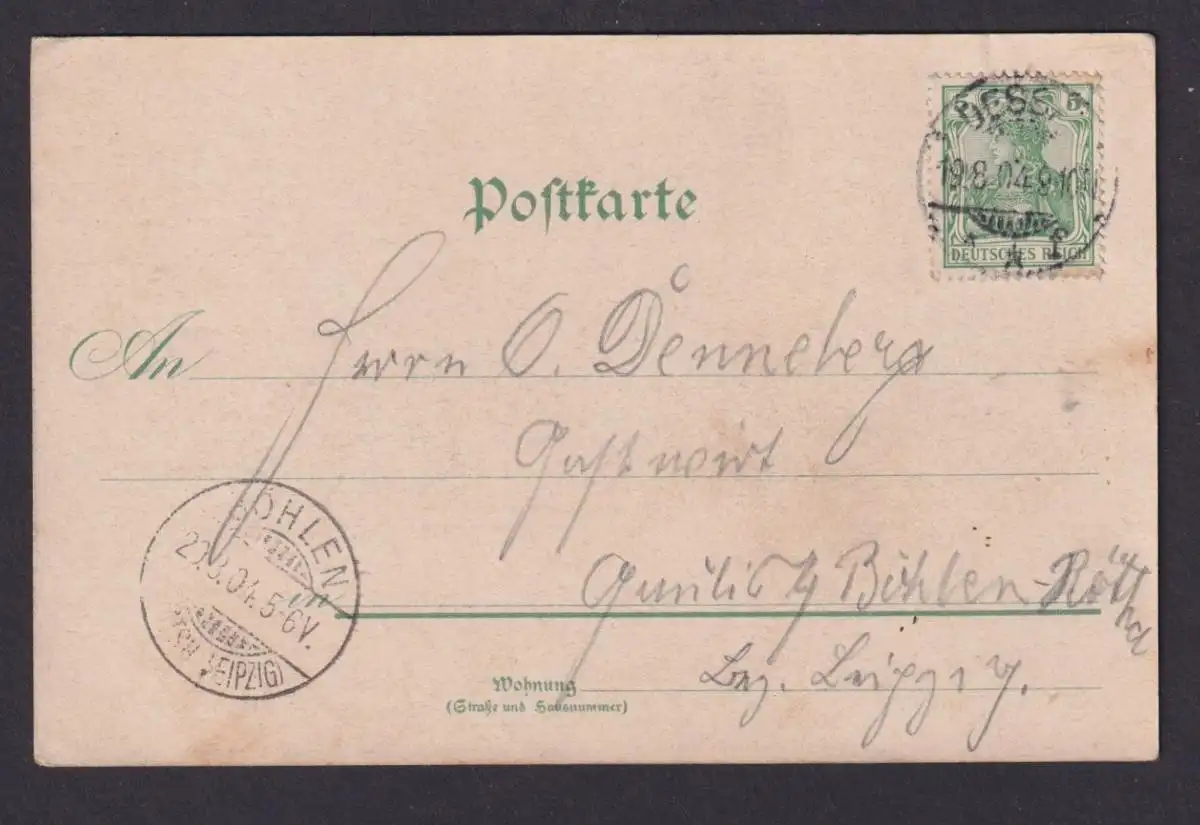 Postkarte
DESS
5
19.8.04.9-10
DEUTSCHES REICH
An Herrn O. Denneberg
Gastwirt
Gaulis b/ Böhlen-Rötha
BÖHLEN
20.8.04.5-6V.
LEIPZIG)
Bez. Leipzig.
Wohnung
(Straße und Hausnummer)